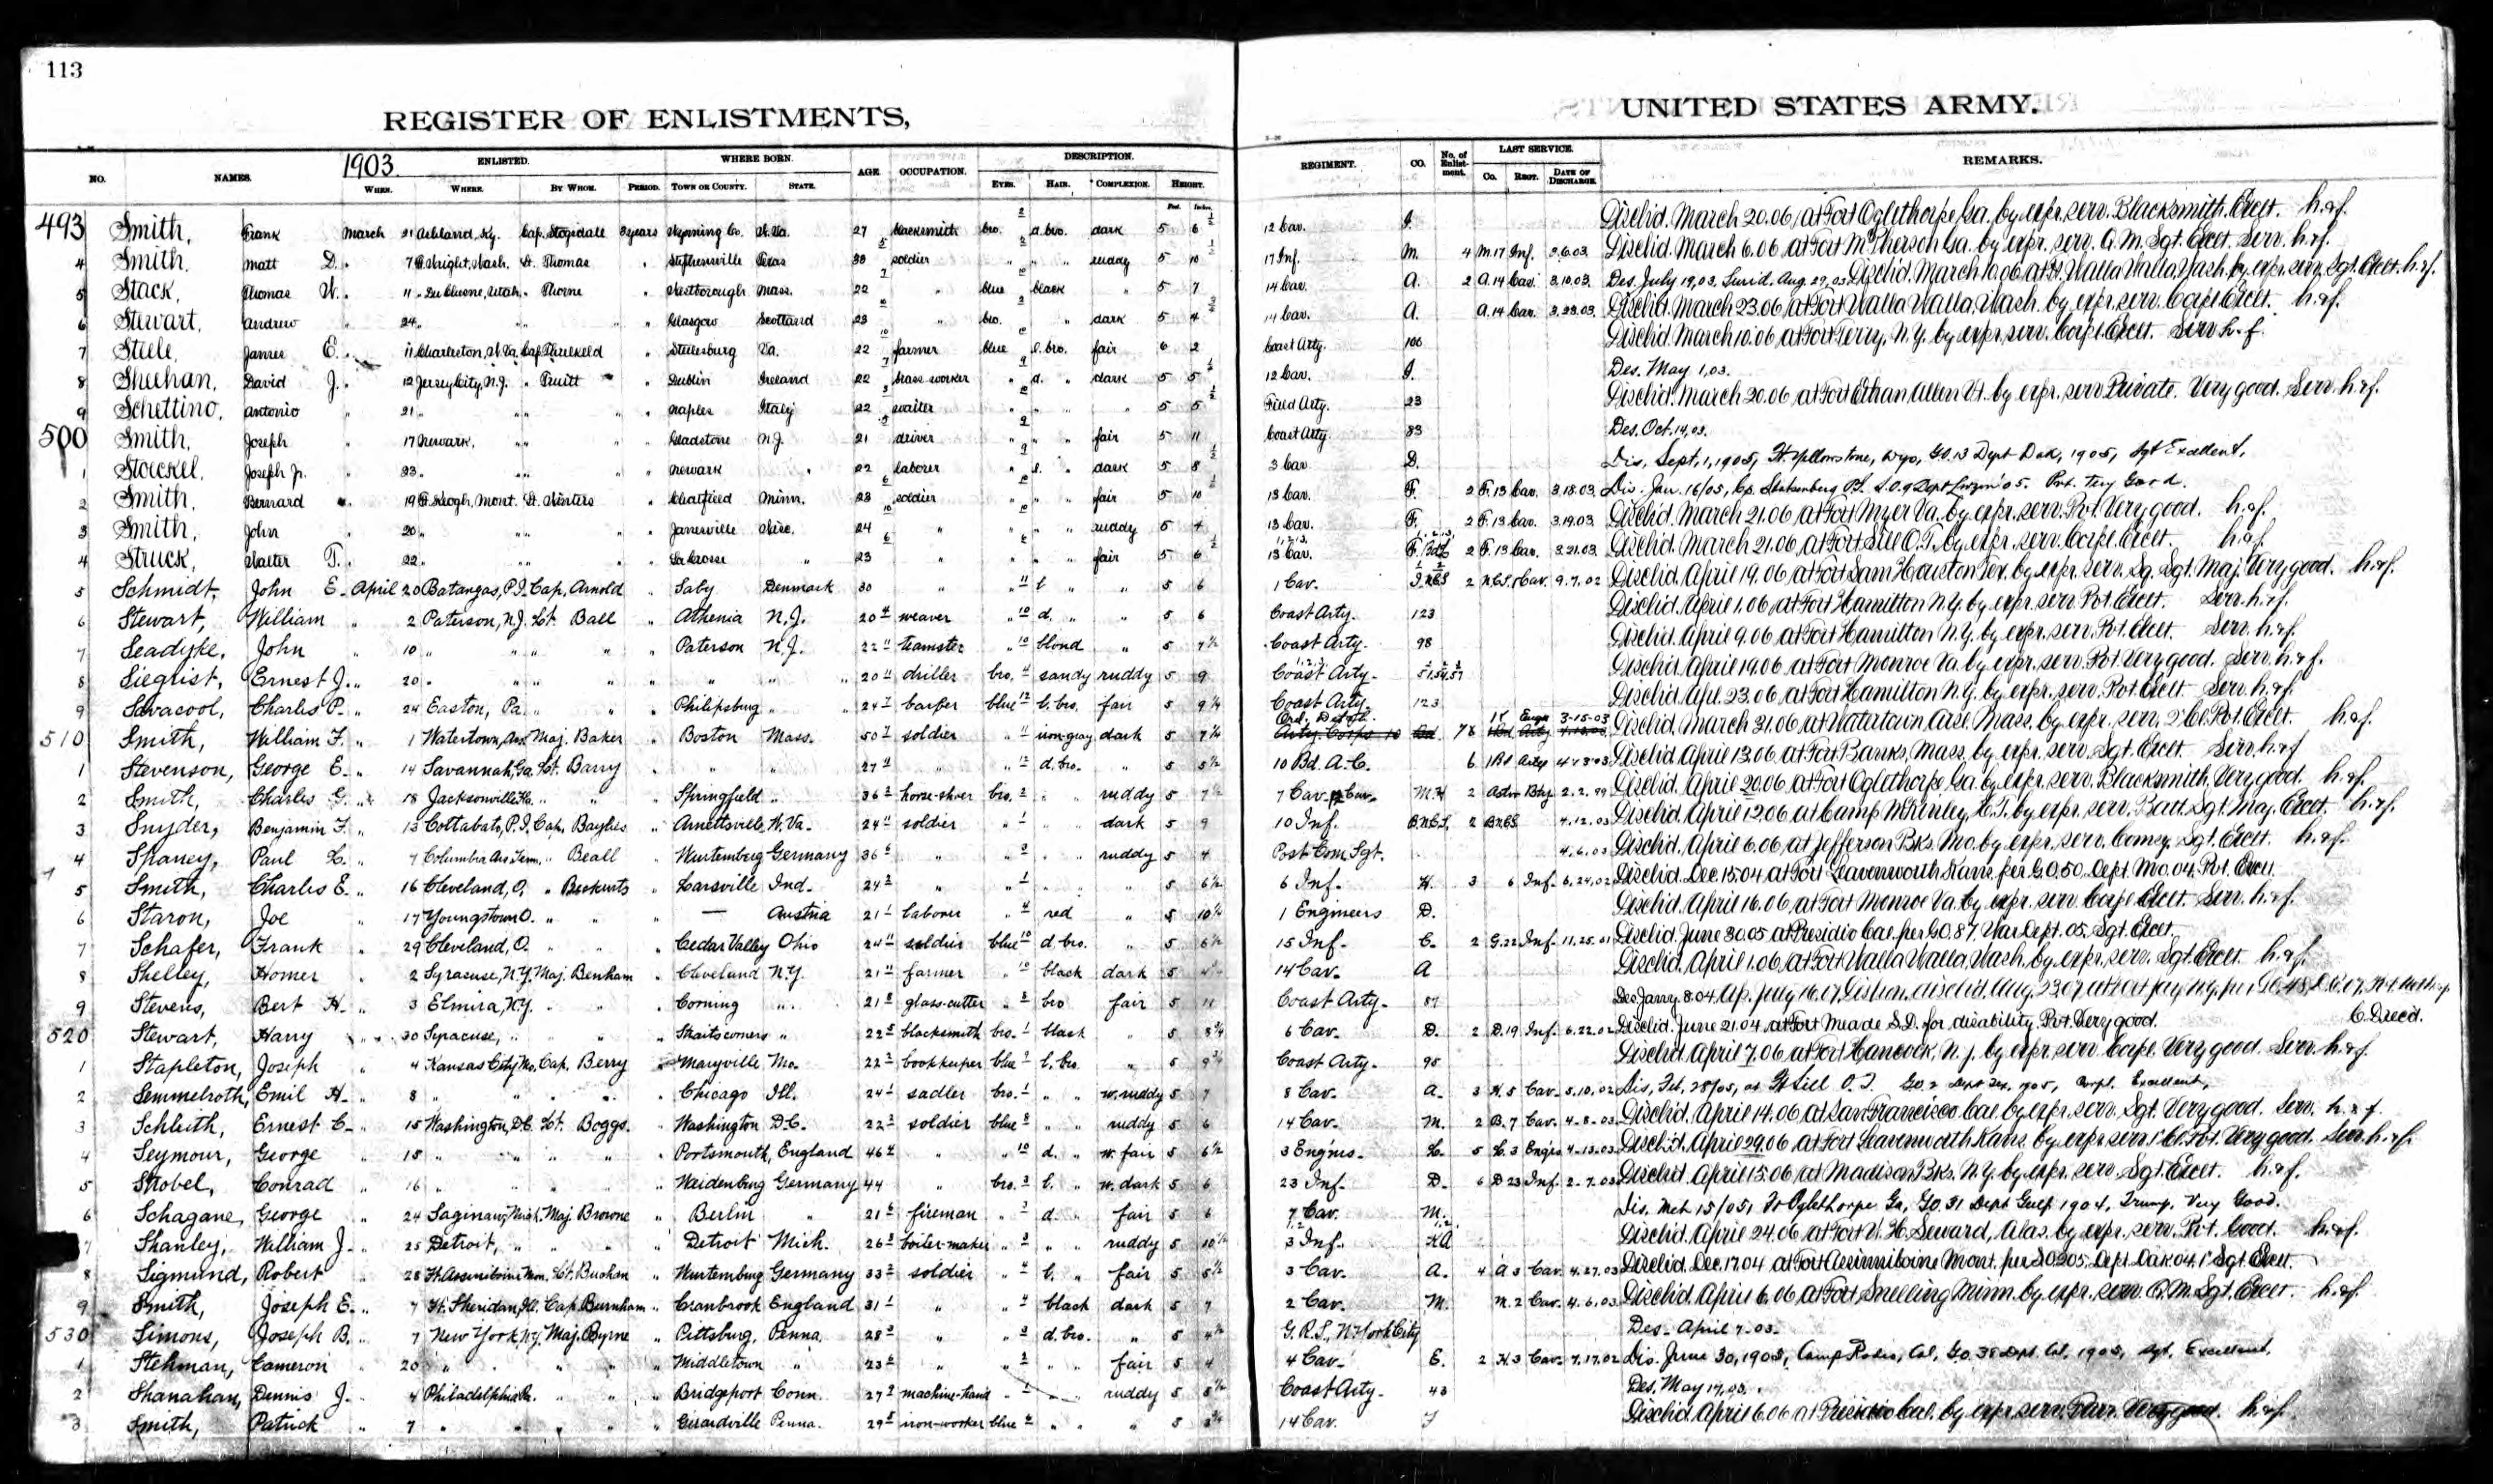 113
REGISTER OF ENLISTMENTS,
UNITED STATES ARMY.
1903.
NO. NAMES. ENLISTED. WHERE BORN. AGE. OCCUPATION. DESCRIPTION. REGIMENT. CO. No. of Enlistment. LAST SERVICE. REMARKS.
WHEN. WHERE. BY WHOM. PERIOD. TOWN OR COUNTY. STATE. EYES. HAIR. COMPLEXION. HEIGHT. Co. REGT. DATE OF DISCHARGE.
Feet. Inches.
493 Smith, Frank March 21 Ashland, Ky. Cap. 3 years Wyoming Co. W. Va. 27 blacksmith bro. d. bro. dark 5 6 1/2 12 Cav. I. Dischd. March 20.06, at Fort Oglethorpe, Ga. by expr. serv. Blacksmith. Exclt. h.&f.
4 Smith, Matt D. " 7 Ft. Wright, Wash. Lt. Thomas " Stephensville Texas 30 soldier " " " ruddy 5 10 1/2 17 Inf. M. 4 M. 17 Inf. 3.6.03 Dischd. March 6.06 at Fort McPherson Ga. by expr. serv. Q. M. Sgt. Exclt. Serv. h.&f.
5 Stack, Thomas W. " 11 Ft. DuChesne, Utah. " Thorne " Westborough Mass. 22 " blue black " 5 7 14 Cav. A. 2 A. 14 Cav. 3.10.03 Des. July 19, 03. Surd. Aug. 29, 03. Dischd. March 10.06 at Ft. Walla Walla Wash. by expr. serv. Sgt. Exclt. h.&f.
6 Stewart, Andrew " 24 " " " " Glasgow Scotland 23 " bro. " dark 5 4 1/2 14 Cav. A. A. 14 Cav. 3.23.03 Dischd. March 23.06 at Fort Walla Walla, Wash. by expr. serv. Corpl. Exclt. h.&f.
7 Steele, James E. " 11 Charleston, W. Va. Cap. Threlkeld " Steelesburg Va. 22 farmer blue l. bro. fair 6 2 Coast Arty. 100 Dischd. March 10.06 at Fort Terry, N. Y. by expr. serv. Corpl. Exclt. Serv. h.&f.
8 Sheehan, David J. " 12 Jersey City, N. J. " Pruitt " Dublin Ireland 22 brass worker " d. " dark 5 5 1/2 12 Cav. I. Des. May 1, 03.
9 Schettino, Antonio " 21 " " " " Naples Italy 22 waiter " " " " 5 5 1/2 Field Arty. 23 Dischd. March 20.06 at Fort Ethan Allen Vt. by expr. serv. Private. Very good. Serv. h.&f.
500 Smith, Joseph " 17 Newark, " " " Gladstone N. J. 21 driver " " " fair 5 11 Coast Arty. 83 Des. Oct. 14, 03.
1 Stoeckel, Joseph Jr. " 23 " " " " Newark " 22 laborer " l. " dark 5 8 1/2 3 Cav. D. Dis. Sept. 1, 1905, Ft. Yellowstone, Wyo, G.O. 13 Dept Dak, 1905, Sgt Excellent.
2 Smith, Bernard " 19 Ft. Keogh, Mont. Lt. Winters " Chatfield Minn. 23 soldier " " " fair 5 10 1/2 13 Cav. F. 2 F. 13 Cav. 3.18.03 Dis. Jan. 16/05, Cp. Stotsenberg P.I. S.O. 9 Dept Luzon '05. Pvt. Very Good.
3 Smith, John " 20 " " " " Janesville Wisc. 24 " " " " ruddy 5 4 13 Cav. F. 2 F. 13 Cav. 3.19.03 Dischd. March 21.06 at Fort Myer Va. by expr. serv. Pvt. Very good. h.&f.
4 Struck, Walter T. " 22 " " " " La Crosse " 23 " " " " fair 5 6 1/2 13 Cav. F. 2 F. 13 Cav. 3.21.03 Dischd. March 21.06 at Fort Sill O. T. by expr. serv. Corpl. Exclt. h.&f.
5 Schmidt, John E. April 20 Batangas, P. I. Cap. Arnold " Saby Denmark 30 " " 11 l " " 5 6 1 Cav. I. N.C.S. 2 N.C.S. 1 Cav. 9.7.02 Dischd. April 19.06 at Fort Sam Houston Tex. by expr. serv. Sq. Sgt. Maj. Very good. h.&f.
6 Stewart, William " 2 Paterson, N. J. Lt. Ball " Athenia N. J. 20 4 weaver " 10 d. " " 5 6 Coast Arty. 123 Dischd. April 1.06 at Fort Hamilton N. Y. by expr. serv. Pvt. Exclt. Serv. h.&f.
7 Seadyke, John " 10 " " " " Paterson N. J. 22 11 teamster " 10 blond " 5 7 1/2 Coast Arty. 98 Dischd. April 9.06 at Fort Hamilton N. Y. by expr. serv. Pvt. Exclt. Serv. h.&f.
8 Siegrist, Ernest J. " 20 " " " " " " 20 11 driller bro. 4 sandy ruddy 5 9 Coast Arty. 51.54.57 Dischd. April 19.06 at Fort Monroe Va. by expr. serv. Pvt. Very good. Serv. h.&f.
9 Savacool, Charles P. " 24 Easton, Pa. " " " Philipsburg " 24 7 barber blue 12 l. bro. fair 5 9 1/4 Coast Arty. 123 Dischd. Apl. 23.06 at Fort Hamilton N. Y. by expr. serv. Pvt. Exclt. Serv. h.&f.
510 Smith, William F. " 1 Watertown, Ars. Maj. Baker " Boston Mass. 50 7 soldier " 11 iron-gray dark 5 7 1/4 Ord. Detch. 3-15-03 Dischd. March 31.06 at Watertown Arsl. Mass. by expr. serv. 2 Cl. Pvt. Exclt. h.&f.
1 Stevenson, George E. " 14 Savannah, Ga. Lt. Barry " " " 27 4 " " 12 d. bro. " 5 5 1/2 10 Bd. A. C. 6 1 Bd Arty 4-13-03 Dischd. April 13.06 at Fort Banks, Mass. by expr. serv. Sgt. Exclt. Serv. h.&f.
2 Smith, Charles G. " 18 Jacksonville Fla. " " " Springfield " 36 2 horse-shoer bro. 2 " " ruddy 5 7 1/2 7 Cav. 12 Cav. M. H 2 Astor Bty. 2.2.99 Dischd. April 20.06 at Fort Oglethorpe, Ga. by expr. serv. Blacksmith. Very good. h.&f.
3 Snyder, Benjamin F. " 13 Cottabato, P. I. Cap. Bayliss " Arnettsville, W. Va. 24 11 soldier " 1 " " dark 5 9 10 Inf. B.N.C.S. 2 B.N.C.S. 4.12.03 Dischd. April 12.06 at Camp McKinley, H. T. by expr. serv. Batt. Sgt. Maj. Exclt. h.&f.
4 Spaney, Paul L. " 7 Columbia Ars. Tenn. " Beall " Wurtemburg Germany 36 6 " " 3 " " ruddy 5 4 Post Com. Sgt. 4.6.03 Dischd. April 6.06 at Jefferson Bks. Mo. by expr. serv. Comsy. Sgt. Exclt. h.&f.
5 Smith, Charles E. " 16 Cleveland, O. " Beckurts " Larsville Ind. 24 2 " " 1 " " " 5 6 1/2 6 Inf. H. 3 6 Inf. 6.24.02 Dischd. Dec. 15.04 at Fort Leavenworth Kans. per G.O. 50. Dept. Mo. 04. Pvt. Exclt.
6 Staron, Joe " 17 Youngstown O. " " " — Austria 21 1 laborer " 4 red " 5 10 1/4 1 Engineers D. Dischd. April 16.06 at Fort Monroe Va. by expr. serv. Corpl. Exclt. Serv. h.&f.
7 Schafer, Frank " 29 Cleveland, O. " " " Cedar Valley Ohio 24 11 soldier blue 10 d. bro. " 5 6 1/2 15 Inf. C. 2 G. 22 Inf. 11.25.01 Dischd. June 30.05 at Presidio Cal. per G.O. 87. War Dept. 05. Sgt. Exclt.
8 Shelley, Homer " 2 Syracuse, N. Y. Maj. Benham " Cleveland N. Y. 21 11 farmer " 10 black dark 5 14 Cav. A Dischd. April 1.06 at Fort Walla Walla, Wash. by expr. serv. Sgt. Exclt. h.&f.
9 Stevens, Bert H. " 3 Elmira, N. Y. " " " Corning " 21 8 glass-cutter " 8 bro fair 5 11 Coast Arty. 87 Des. Jany. 8.04. Ap. July 16.07. Dischd. Aug. 23.07 at Fort Jay N. Y.
520 Stewart, Harry " 30 Syracuse, " " " " Straits corners " 22 5 blacksmith bro. 1 black " 5 8 3/4 6 Cav. D. 2 D. 19 Inf. 6.22.02 Dischd. June 21.04 at Fort Meade S. D. for disability. Pvt. Very good.
1 Stapleton, Joseph " 4 Kansas City Mo. Cap. Berry " Maryville Mo. 22 2 bookkeeper blue 9 l. bro. " 5 9 3/4 Coast Arty. 95 Dischd. April 7.06 at Fort Hancock, N. J. by expr. serv. Corpl. Very good. Serv. h.&f.
2 Semmelroth, Emil H. " 8 " " " " Chicago Ill. 24 1 sadler bro. 1 " " w. ruddy 5 7 8 Cav. A. 3 H. 5 Cav. 5.10.02 Dis. Feb. 28/05, at Ft Sill O. T. G.O. 2 Dept Tex. 1905, Corpl. Excellent,
3 Schleith, Ernest C. " 15 Washington, D.C. Lt. Boggs. " Washington D.C. 22 2 soldier blue 8 " " ruddy 5 6 14 Cav. M. 2 B. 7 Cav. 4-8-03 Dischd. April 14.06 at San Francisco Cal. by expr. serv. Sgt. Very good. Serv. h.&f.
4 Seymour, George " 15 " " " " Portsmouth, England 46 4 " " 10 d. " w. fair 5 6 1/2 3 Eng'rs. L. 5 L. 3 Eng'rs 4-13-03 Dischd. April 29.06 at Fort Leavenworth Kans. by expr. serv. 1 Cl. Pvt. Very good. Serv. h.&f.
5 Strobel, Conrad " 16 " " " " Waidenburg Germany 44 " bro. 3 l. " w. dark 5 6 23 Inf. D. 6 D 23 Inf. 2-7.03 Dischd. April 15.06 at Madison Bks. N. Y. by expr. serv. Sgt. Exclt. h.&f.
6 Schagane, George " 24 Saginaw, Mich. Maj. Browne " Berlin " 21 6 fireman " 3 d. " fair 5 6 7 Cav. M. Dis. Mch 15/05, Ft Oglethorpe Ga, G.O. 31 Dept Gulf 1904, Trump. Very Good.
7 Shanley, William J. " 25 Detroit, " " " " Detroit Mich. 26 3 boiler-maker " 3 " " ruddy 5 10 1/2 3 Inf. H.A Dischd. April 24.06 at Fort W. H. Seward, Alas. by expr. serv. Pvt. Good. h.&f.
8 Sigmund, Robert " 28 Ft. Assiniboine Mon. Lt. " Wurtemburg Germany 33 2 soldier " 4 l. " fair 5 5 1/2 3 Cav. A. 4 A 3 Cav. 4.27.03 Dischd. Dec. 17.04 at Fort Assinniboine Mont. per S.O. 205. Dept. Dak. 04. 1 Sgt. Exclt.
9 Smith, Joseph E. " 7 Ft. Sheridan, Ill. Cap. Burnham " Cranbrook England 31 1 " " 4 black dark 5 7 2 Cav. M. M. 2 Cav. 4.6.03 Dischd. April 6.06 at Fort Snelling Minn. by expr. serv. Q. M. Sgt. Exclt. h.&f.
530 Simons, Joseph B. " 7 New York, N.Y. Maj. Byrne " Pittsburg, Penna. 28 3 " " 3 d. bro. " 5 4 1/2 G. R. S., N. York City Des. April 7-03.
1 Stehman, Cameron " 20 " " " " Middletown " 23 6 " " 2 " " fair 5 4 4 Cav. E. 2 H. 3 Cav. 7.17.02 Dis. June 30, 1905, Camp Rodes, Cal. G.O. 38 Dept. Cal. 1905, Sgt. Excellent.
2 Shanahan, Dennis J. " 4 Philadelphia Pa. " " " Bridgeport Conn. 27 9 machine-hand " 1 " " ruddy 5 5 1/2 Coast Arty. 43 Des. May 17, 03.
3 Smith, Patrick " 7 " " " " Girardville Penna. 29 5 iron-worker blue " " " 5 3 3/4 14 Cav. Dischd. April 6.06 at Presidio Cal. by expr. serv. Farr. Very good. h.&f.